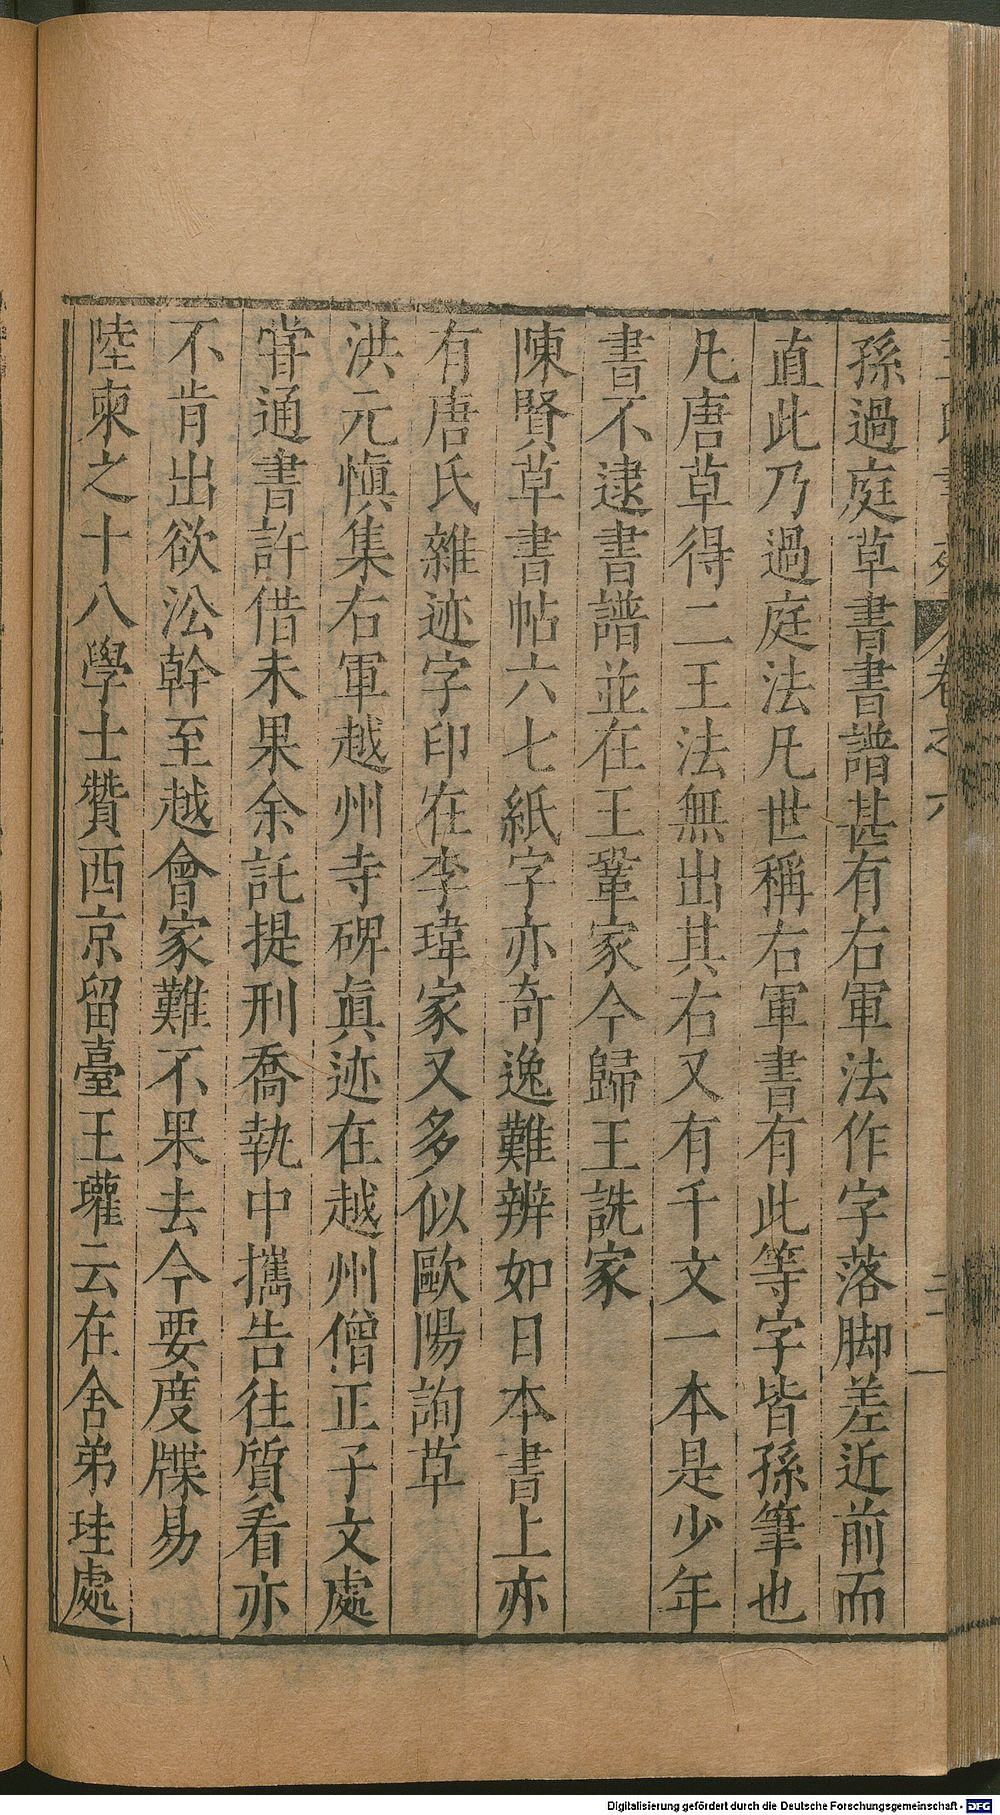 孫過庭草書書譜甚有右軍法作字落脚差近前而
直此乃過庭法凡世稱右軍書有此等字皆孫筆也
凡唐草得二王法無出其右又有千文一本是少年
書不逮書譜並在王鞏家今歸王詵家
陳賢草書帖六七紙字亦奇逸難辨如日本書上亦
有唐氏雜迹字印在李瑋家又多似歐陽詢草
洪元慎集右軍越州寺碑真迹在越州僧正子文處
甞通書許借未果余託提刑喬執中攜告往質看亦
不肯出欲㳂幹至越會家難不果去今要度牒易
陸柬之十八學士贊西京留臺王瓘云在舍弟珪處
卷之六
二
Digitalisierung gefördert durch die Deutsche Forschungsgemeinschaft - DFG